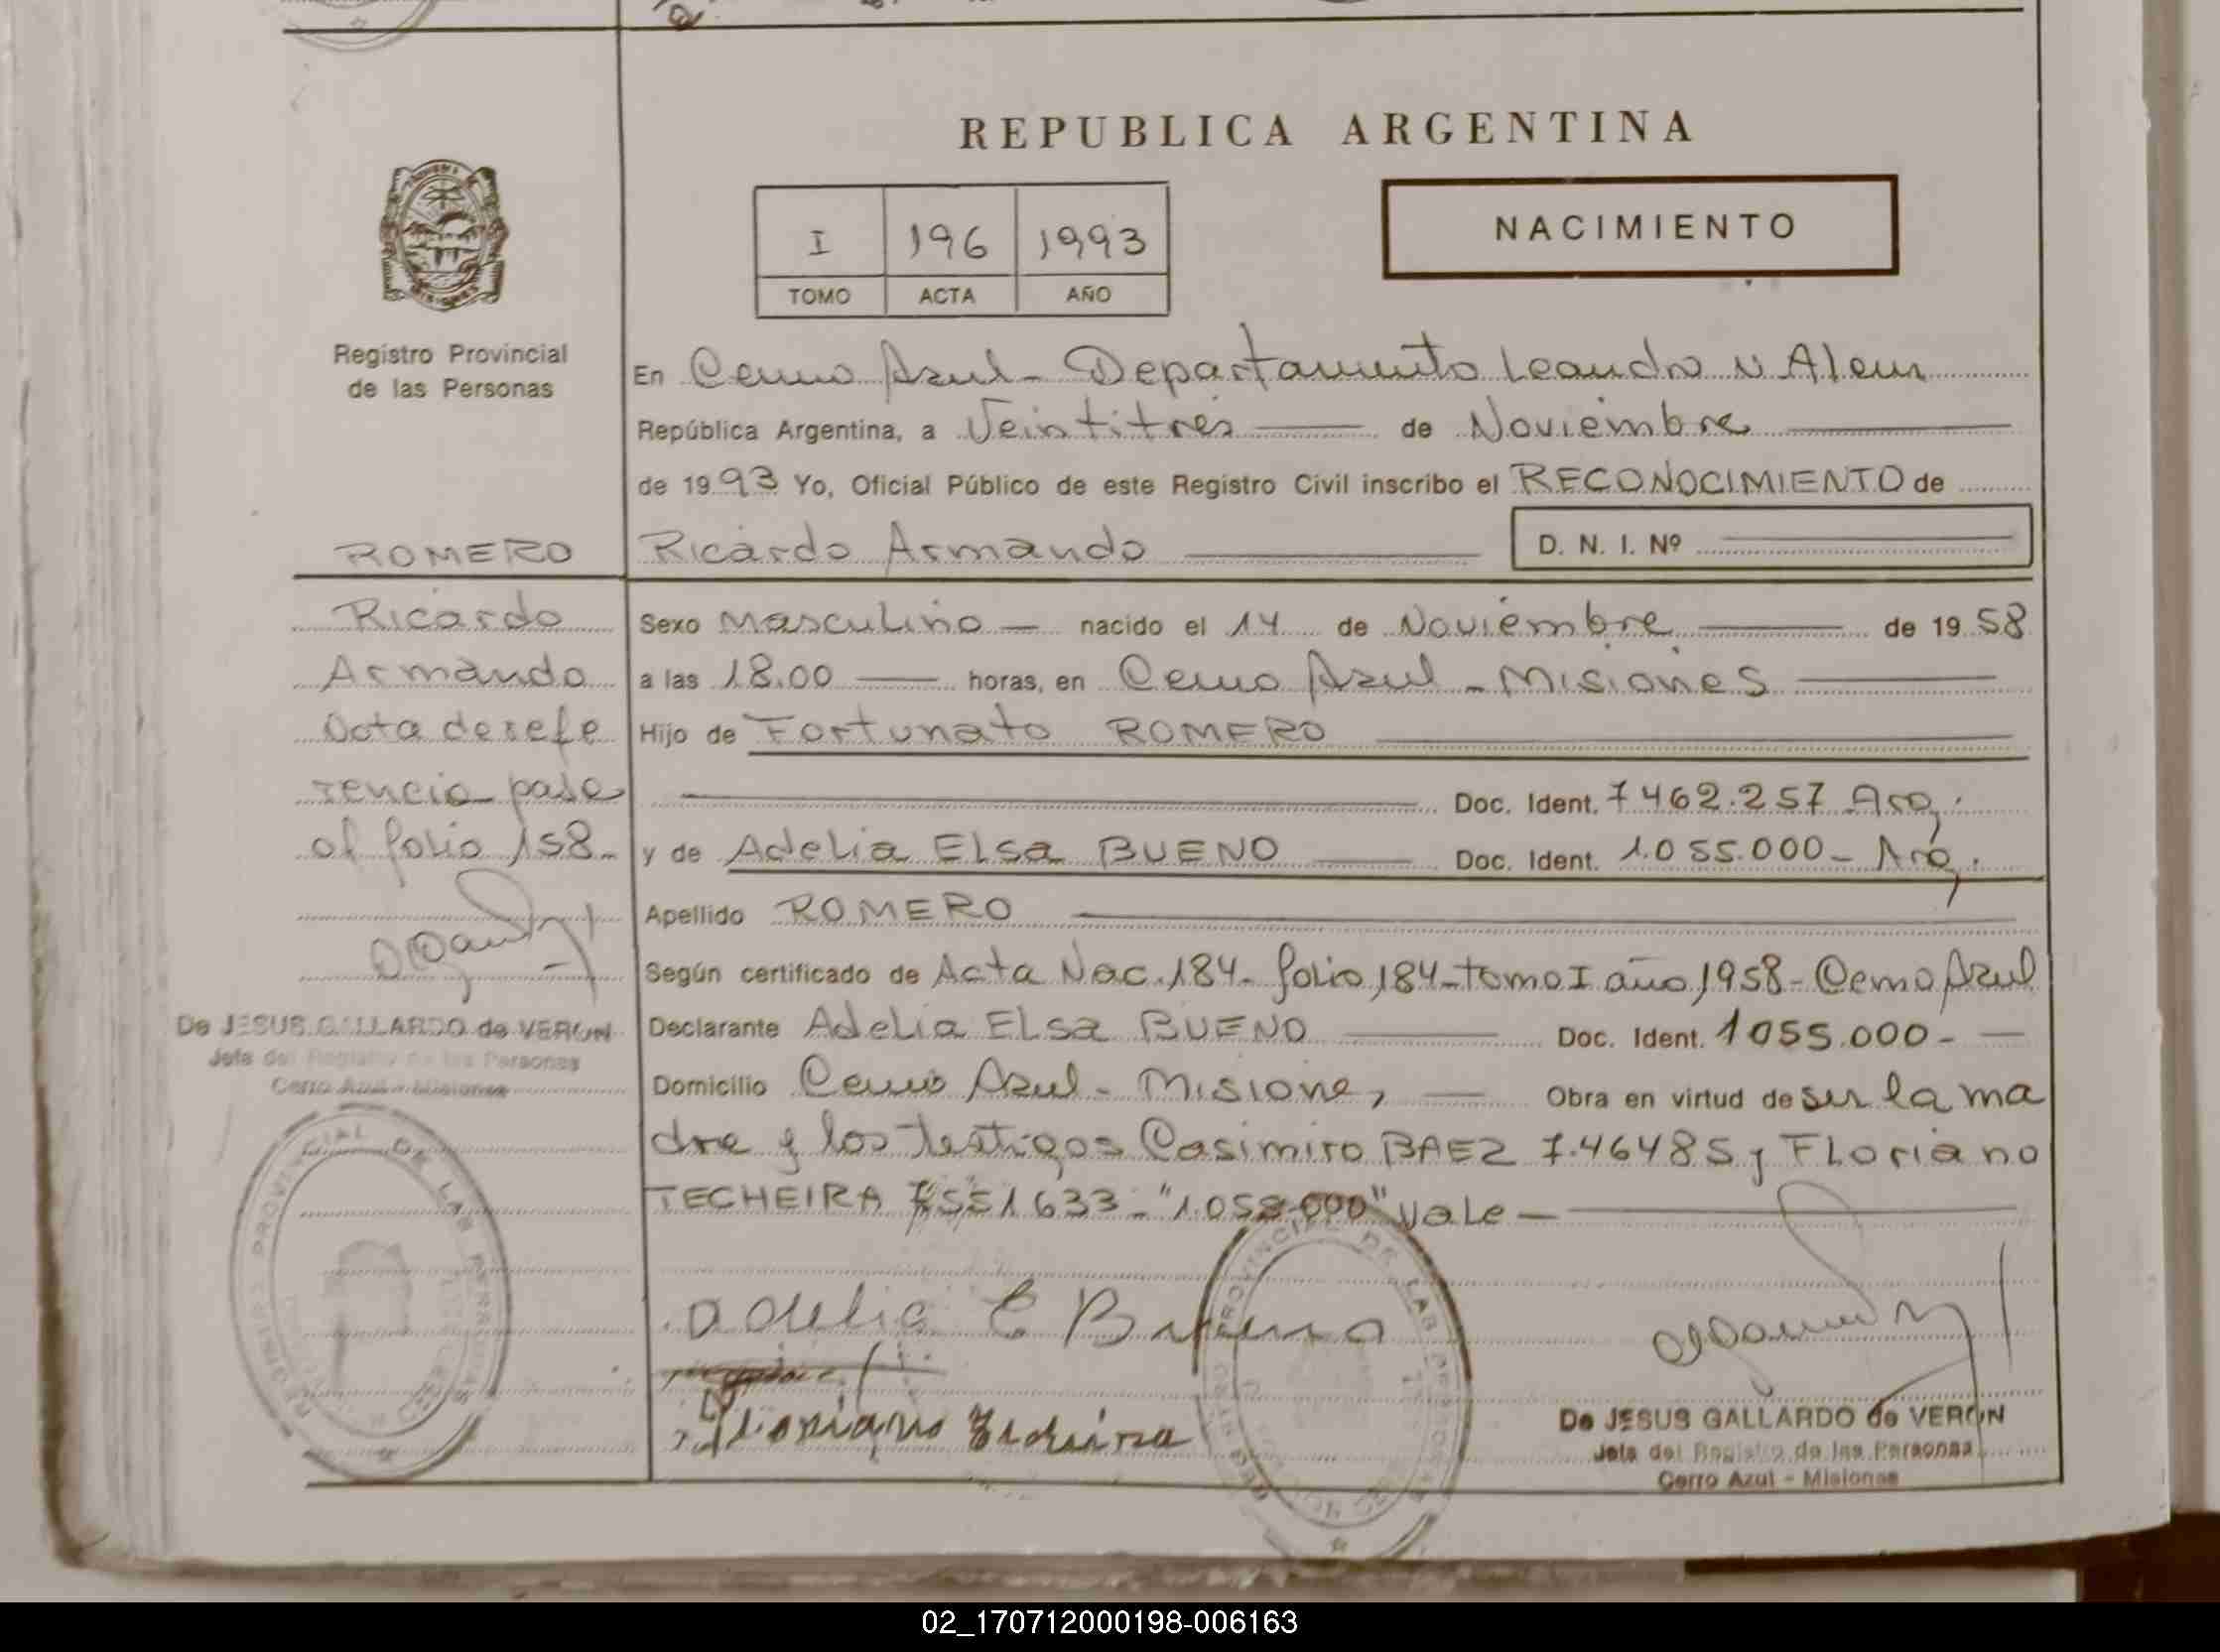 REPUBLICA ARGENTINA
NACIMIENTO
I 196 1993
TOMO ACTA AÑO
Registro Provincial
de las Personas
En Cerro Azul - Departamento Leandro N Alem
República Argentina, a Veintitrés de Noviembre
de 1993 Yo, Oficial Público de este Registro Civil inscribo el RECONOCIMIENTO de
Ricardo Armando D. N. I. Nº
ROMERO
Ricardo
Armando
Nota de refe
rencia pase
al folio 158-
De JESUS GALLARDO de VERON
Jefe del Registro de las Personas
Cerro Azul - Misiones
REGISTRO PROVINCIAL DE LAS PERSONAS
Sexo Masculino nacido el 14 de Noviembre de 1958
a las 18.00 horas, en Cerro Azul - Misiones
Hijo de Fortunato ROMERO
Doc. Ident. 7462.257 Arg.
y de Adelia Elsa BUENO Doc. Ident. 1.055.000 - Arg.
Apellido ROMERO
Según certificado de Acta Nac. 184 - folio 184 - tomo I año 1958 - Cerro Azul
Declarante Adelia Elsa BUENO Doc. Ident. 1055.000 -
Domicilio Cerro Azul - Misiones Obra en virtud de ser la ma
dre y los testigos Casimiro BAEZ 7.46485 y Floriano
TECHEIRA 7551633 - "1.055.000" Vale -
Adelia E Bueno
Floriano
REGISTRO PROVINCIAL DE LAS PERSONAS
De JESUS GALLARDO de VERON
Jefe del Registro de las Personas
Cerro Azul - Misiones
02_170712000198-006163